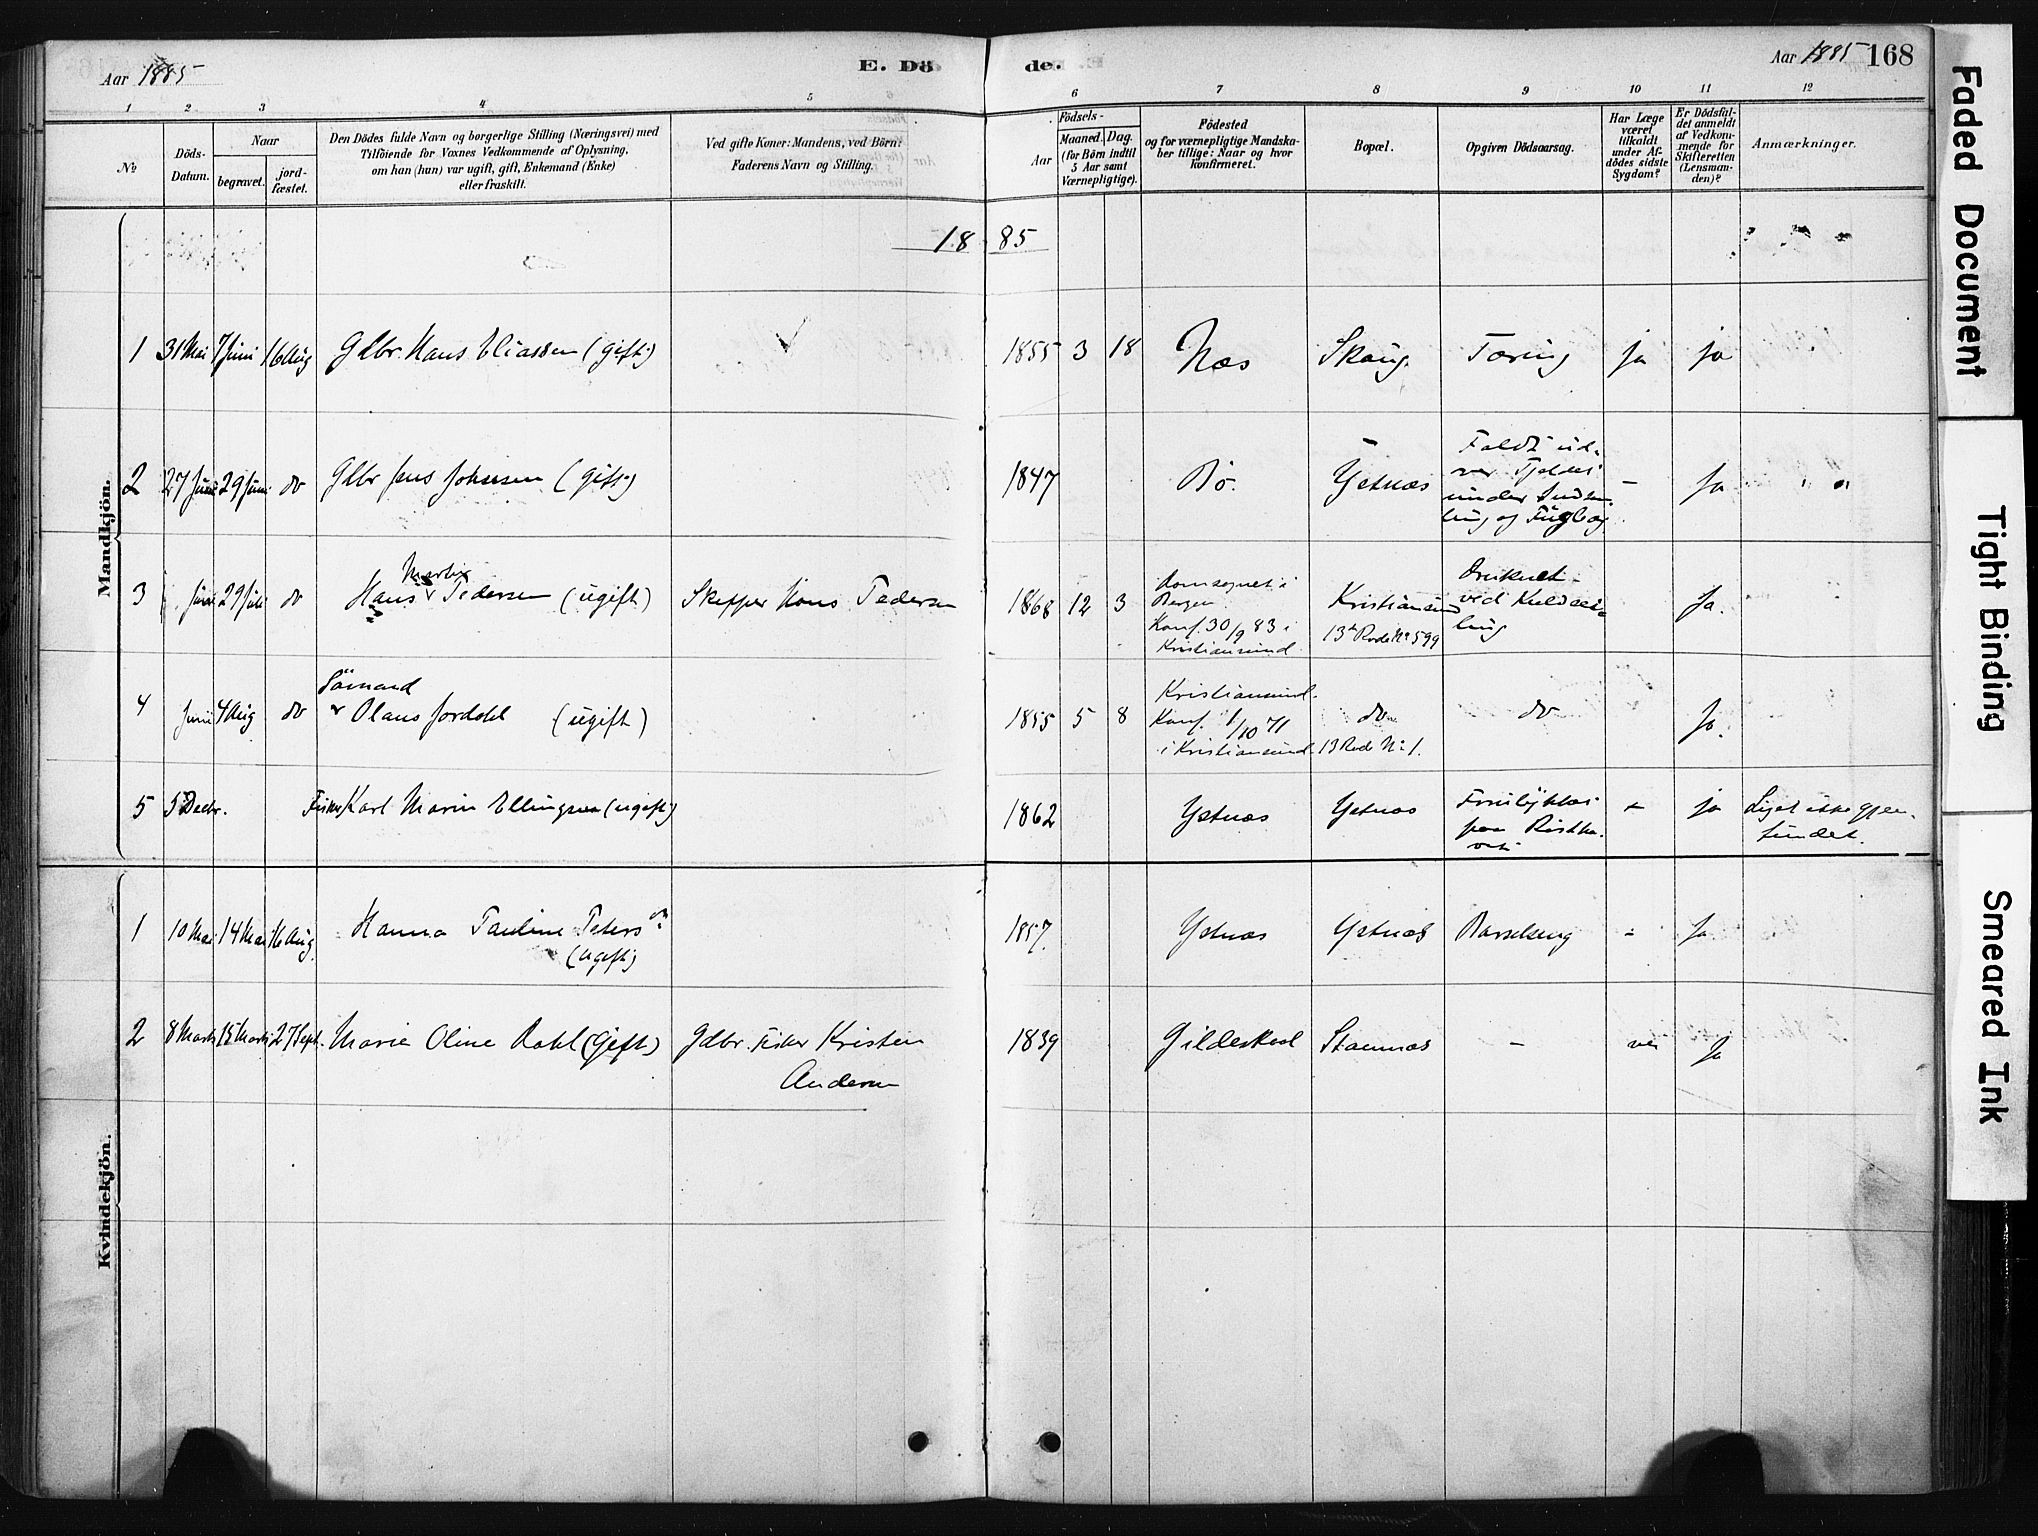 Aar 1885
E. Dö
de.
Aar 1885
168
1 2 3 4 5
6 7 8 9 10 11 12
№
Döds-
Datum.
Naar
begravet.
jord-
fæstet.
Den Dödes fulde Navn og borgerlige Stilling (Næringsvei) med
Tilföiende for Voxnes Vedkommende af Oplysning,
om han (hun) var ugift, gift, Enkemand (Enke)
eller fraskilt.
Ved gifte Koner: Mandens, ved Börn:
Faderens Navn og Stilling.
Aar
Födsels-
Maaned. Dag.
(for Börn indtil
5 Aar samt
Værnepligtige).
Födested
og for værnepligtige Mandska-
ber tillige: Naar og hvor
konfirmeret.
Bopæl.
Opgiven Dödsaarsag.
Har Læge
været
tilkaldt
under Af-
dödes sidste
Sygdom?
Er Dödsfal-
det anmeldt
af Vedkom-
mende for
Skifteretten
(Lensman-
den)?
Anmærkninger.
18 85
Mandkjön.
1 31 Mai 7 Juni 16 Aug Gdbr. Hans Eliassen (gift) 1855 3 18 Næs Skaug. Tæring ja ja
2 27 Juni 29 Juni do Gdbr Jens Johnsen (gift) 1847 Bö. Ystnæs
Faldt ud-
under
og
- Ja
3 Juni 29 Juli do Hans Martin Pedersen (ugift) Skipper Hans Pedersen 1868 12 3
Domsognet i
Bergen.
Konf. 30/9 83 i
Kristiansund
Kristiansund
13de Rode No 599
Druknet
ved Kuldseil-
ling
Ja.
4 Juni 4 Aug do
Sömand
Olaus Jordahl (ugift) 1855 5 8
Kristiansund.
Konf. 1/10 71
i Kristiansund.
do
13 Rode No 1.
do
Ja.
5 5 Decbr. Fisker Karl Marin Ellingsen (ugift) 1862 Ystnæs Ystnæs
Forulykket
paa
- ja
Liget ikke gjen-
fundet.
Kvindekjön.
1 10 Mai 14 Mai 16 Aug. Hanna Pauline Petersen
(ugift)
1857 Ystnæs Ystnæs Barselseng - Ja
2 8 Marts 15 Marts 27 Sept. Marie Oline Dahl (Gift) Gdbr. Fisker Kristen
Andersen
1839 Gildeskaal Stamnæs - nei Ja
Faded Document
Tight Binding
Smeared Ink